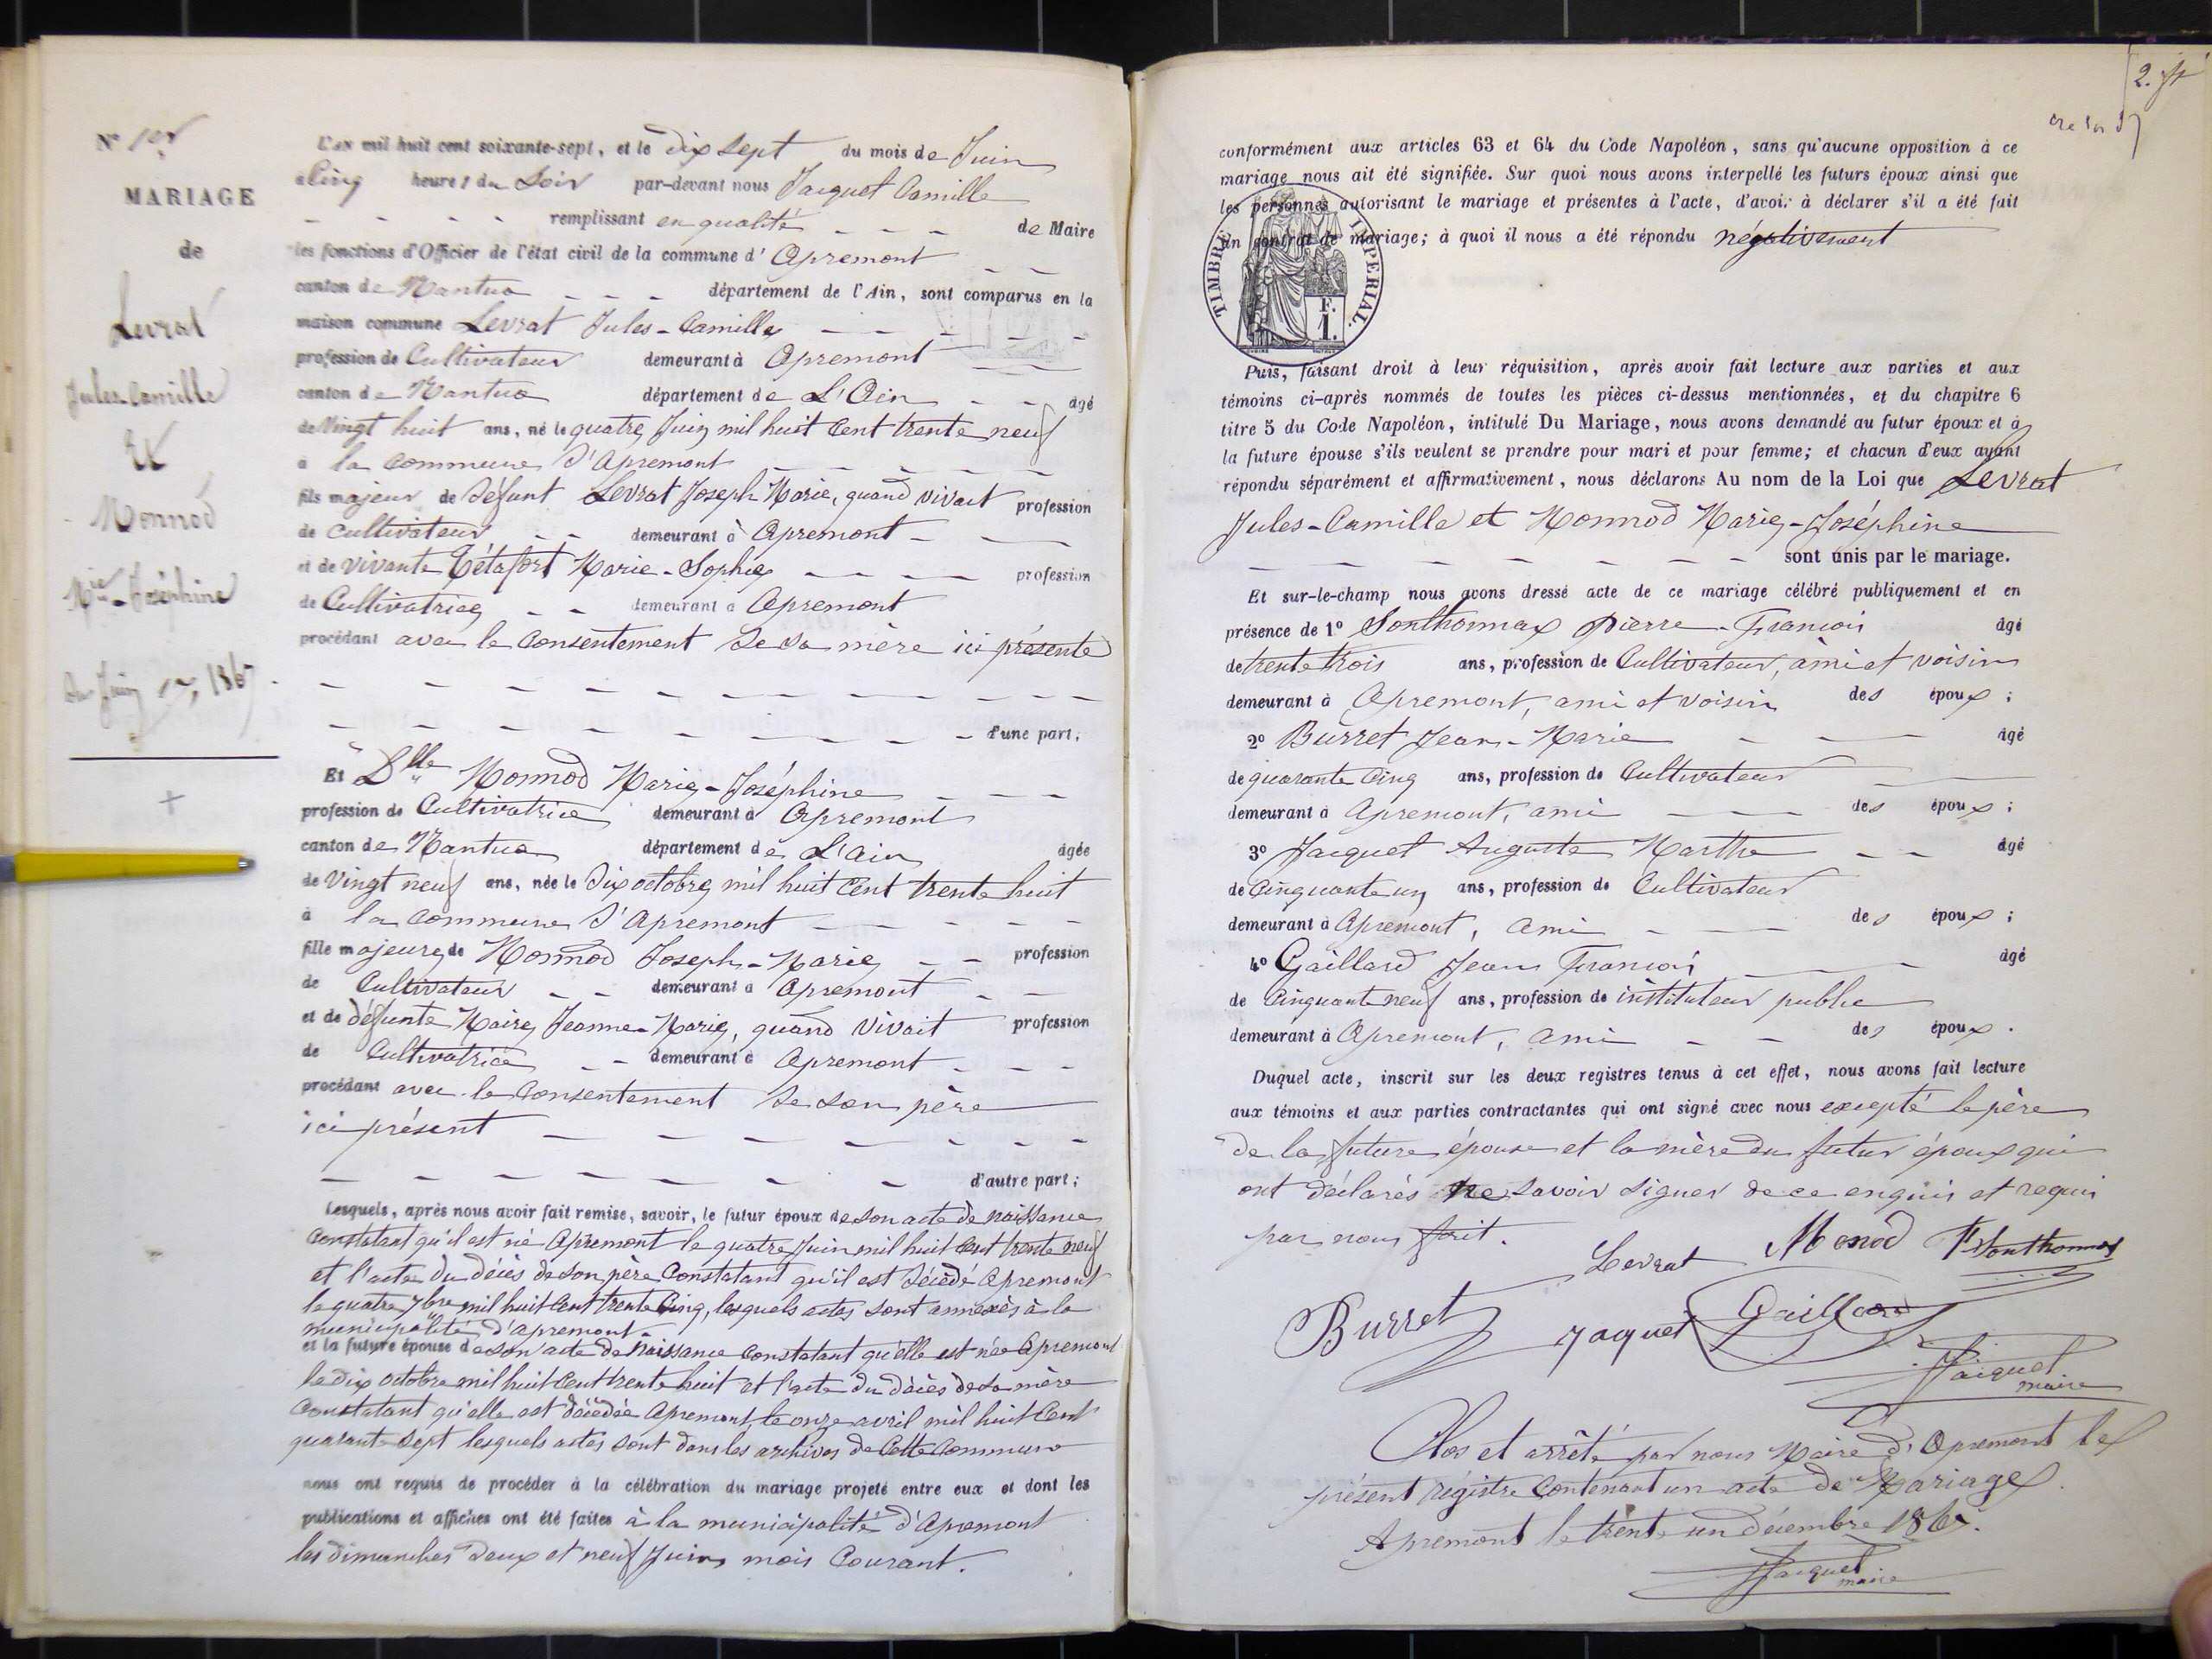 N° 1er
MARIAGE
de
Levrat
Jules-Camille
Et
Monnod
Mie-Joséphine
Du Juin 17, 1867.
L'AN mil huit cent soixante-sept, et le dix sept du mois de Juin
à Cinq heures du Soir par-devant nous Jacquet Camille
remplissant en qualité de Maire
les fonctions d'Officier de l'état civil de la commune d'Apremont
canton de Nantua département de l'Ain, sont comparus en la
maison commune Levrat Jules-Camille
profession de Cultivateur demeurant à Apremont
canton de Nantua département de L'Ain âgé
de Vingt huit ans, né le quatre Juin mil huit Cent trente neuf
à la Commune d'Apremont
fils majeur de défunt Levrat Joseph Marie, quand vivait profession
de cultivateur demeurant à Apremont
et de vivante Tétafort Marie-Sophie profession
de Cultivatrice demeurant à Apremont
procédant avec le Consentement de sa mère ici présente
d'une part,
Et Dlle Monnod Marie-Joséphine
profession de Cultivatrice demeurant à Apremont
canton de Nantua département de L'Ain âgée
de Vingt neuf ans, née le dix octobre mil huit Cent trente huit
à la Commune d'Apremont
fille majeure de Monnod Joseph-Marie profession
de Cultivateur demeurant à Apremont
et de défunte Maire Jeanne-Marie, quand Vivait profession
de Cultivatrice demeurant à Apremont
procédant avec le Consentement de son père
ici présent
d'autre part;
Lesquels, après nous avoir fait remise, savoir, le futur époux de son acte de naissance
Constatant qu'il est né Apremont le quatre Juin mil huit Cent trente neuf
et l'acte du décès de son père Constatant qu'il est décédé Apremont
le quatre 7bre mil huit Cent trente Cinq, lesquels actes sont annexés à la
municipalité d'apremont.
et la future épouse de son acte de Naissance Constatant qu'elle est née Apremont
le dix octobre mil huit Cent trente huit et l'acte du décès de sa mère
Constatant qu'elle est décédée Apremont, le onze avril mil huit Cent
quarante sept lesquels actes sont dans les archives de Cette Commune
nous ont requis de procéder à la célébration du mariage projeté entre eux et dont les
publications et affiches ont été faites à la municipalité d'Apremont
les dimanches deux et neuf Juin mois Courant.
conformément aux articles 63 et 64 du Code Napoléon, sans qu'aucune opposition à ce
mariage nous ait été signifiée. Sur quoi nous avons interpellé les futurs époux ainsi que
les personnes autorisant le mariage et présentes à l'acte, d'avoir à déclarer s'il a été fait
un contrat de mariage; à quoi il nous a été répondu négativement
TIMBRE IMPERIAL.
F.
1.
Puis, faisant droit à leur réquisition, après avoir fait lecture aux parties et aux
témoins ci-après nommés de toutes les pièces ci-dessus mentionnées, et du chapitre 6
titre 5 du Code Napoléon, intitulé Du Mariage, nous avons demandé au futur époux et à
la future épouse s'ils veulent se prendre pour mari et pour femme; et chacun d'eux ayant
répondu séparément et affirmativement, nous déclarons Au nom de la Loi que Levrat
Jules-Camille et Monnod Marie-Joséphine
sont unis par le mariage.
Et sur-le-champ nous avons dressé acte de ce mariage célébré publiquement et en
présence de 1° Sonthonnax Pierre-François âgé
de trente trois ans, profession de Cultivateur, ami et voisin
demeurant à Apremont, ami et voisin des époux;
2° Burret Jean-Marie âgé
de quarante Cinq ans, profession de Cultivateur
demeurant à Apremont, ami des époux;
3° Jacquet Auguste Marthe âgé
de Cinquante un ans, profession de Cultivateur
demeurant à Apremont, ami des époux;
4° Gaillard Jean François âgé
de Cinquante neuf ans, profession de instituteur public
demeurant à Apremont, ami des époux.
Duquel acte, inscrit sur les deux registres tenus à cet effet, nous avons fait lecture
aux témoins et aux parties contractantes qui ont signé avec nous excepté le père
de la future épouse et la mère du futur époux qui
ont déclarés ne savoir signer de ce enquis et requis
par nous fait.
Levrat Monod Fs Sonthonnax
Burret Jaquet Gaillard
Jacquet
maire
Clos et arrêté par nous Maire d'Apremont le
présent régistre Contenant un acte de Mariage.
Apremont le trente un décembre 1867.
Jacquet
maire